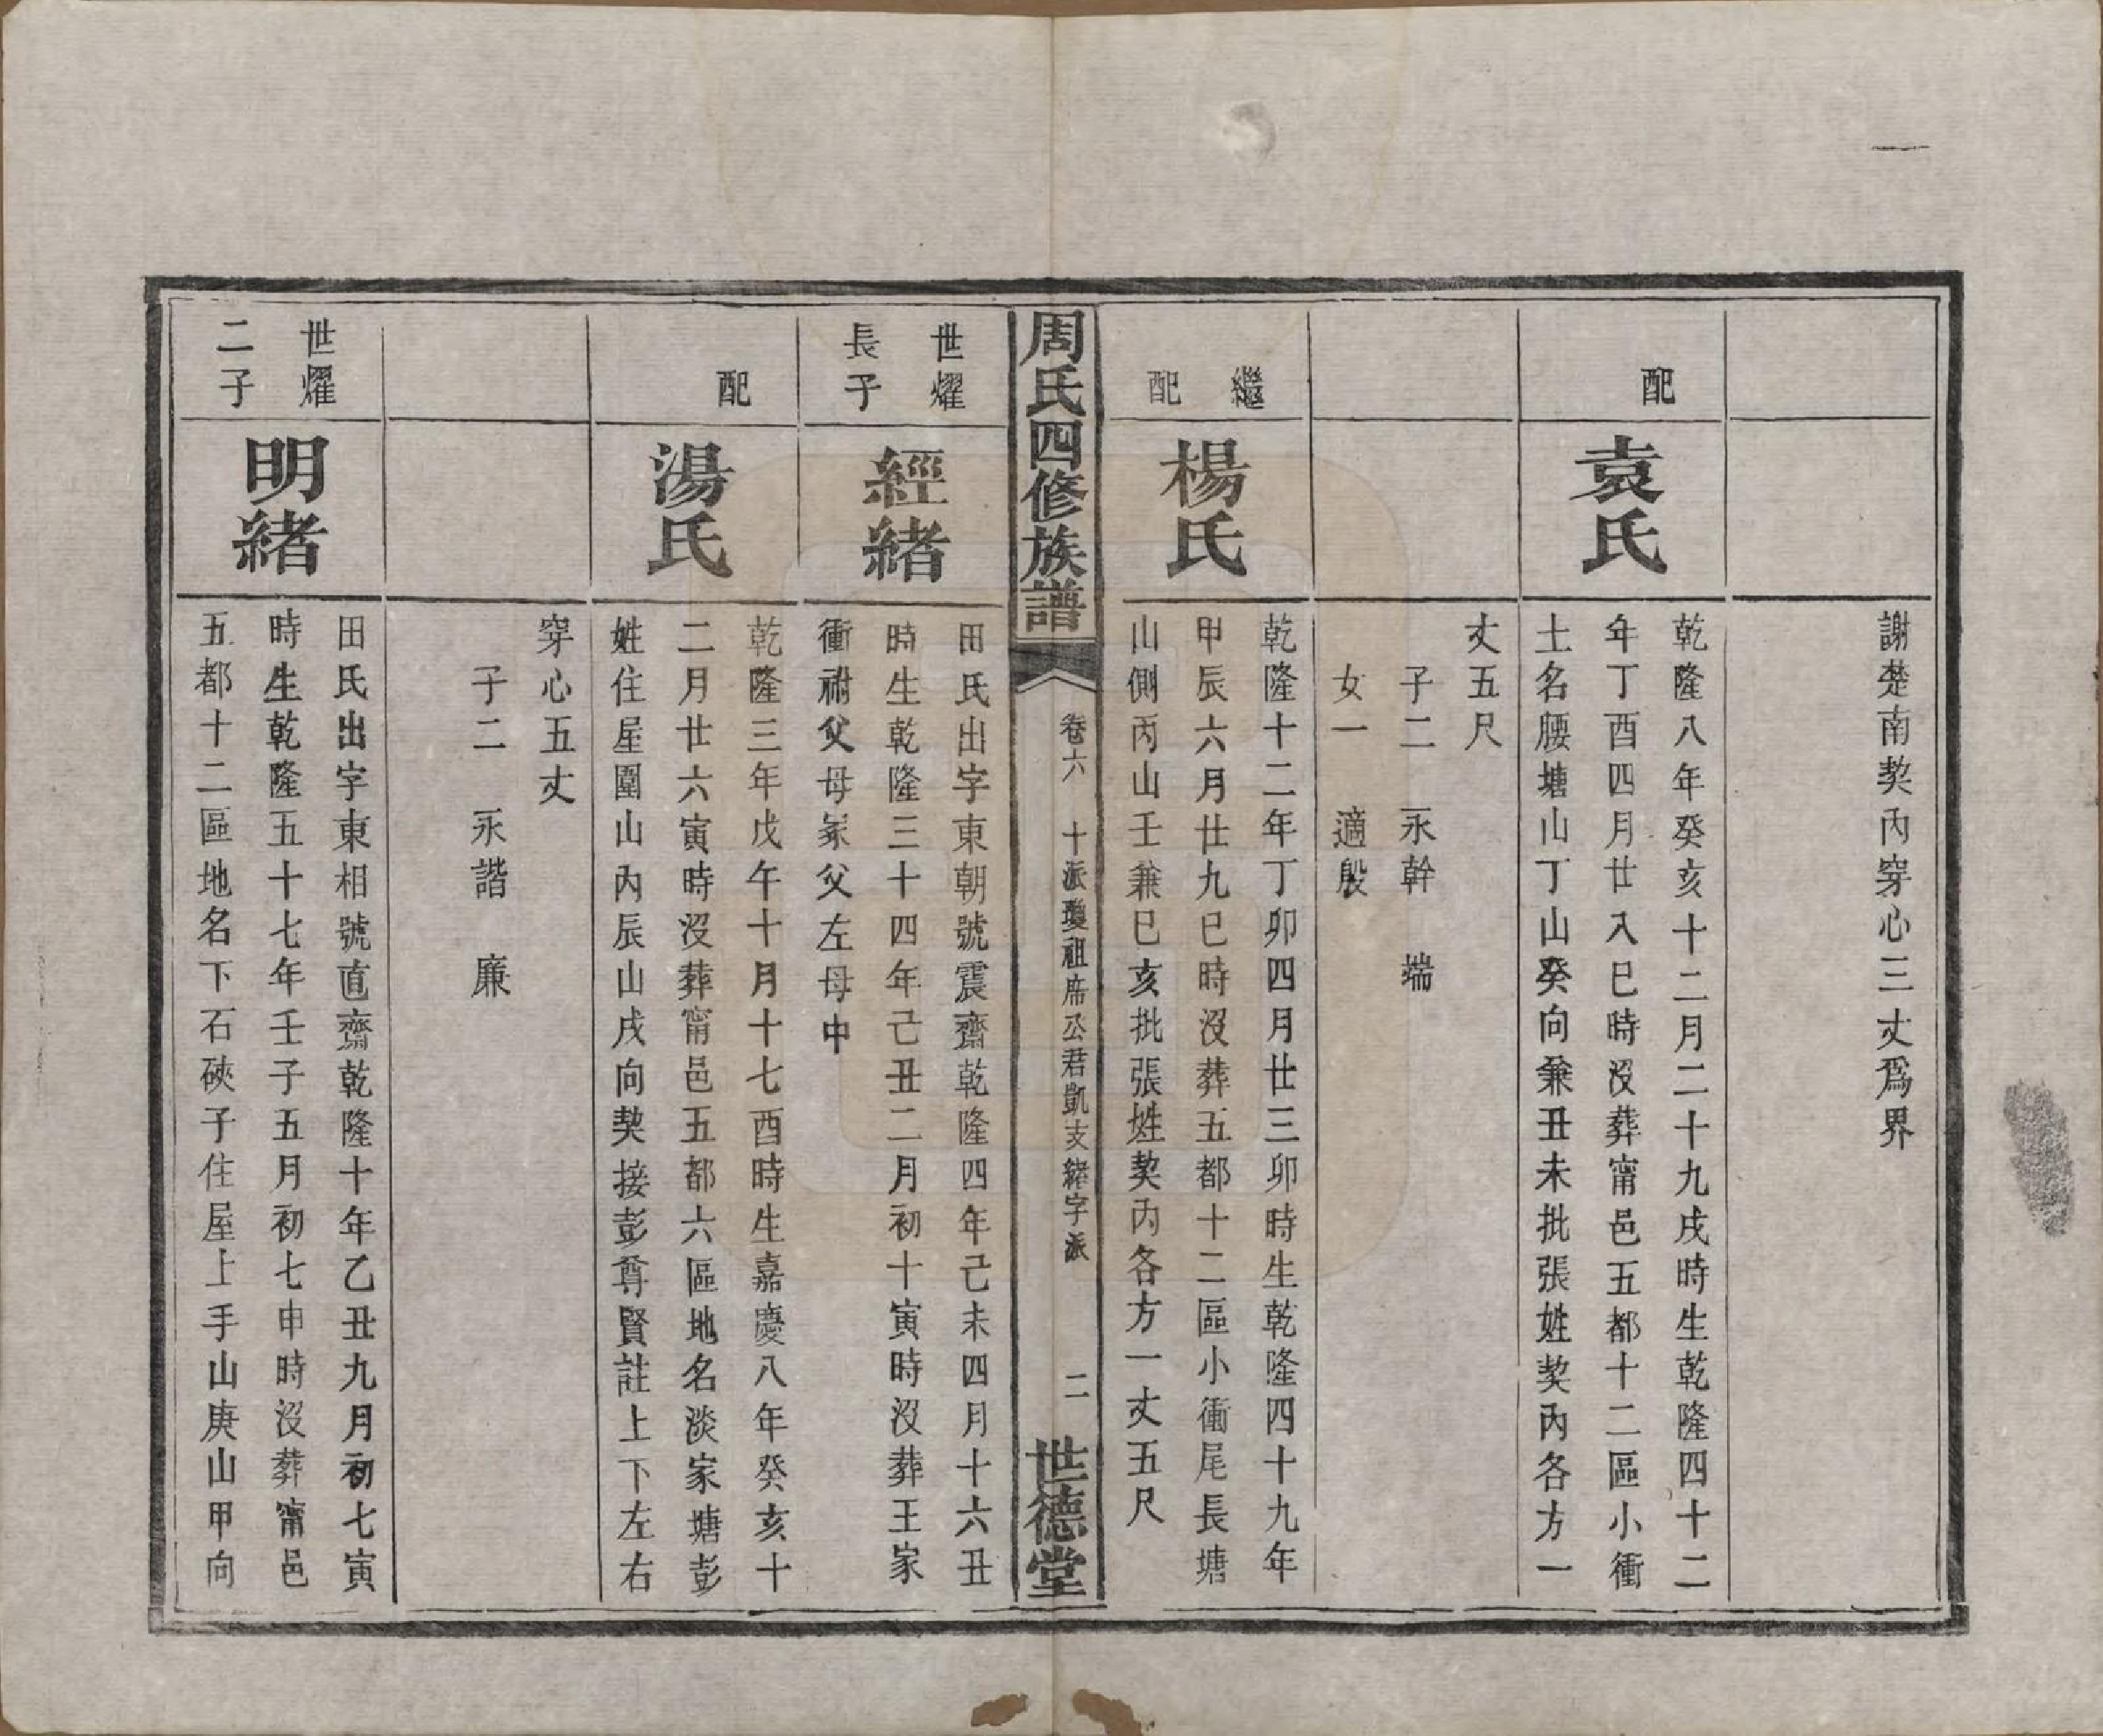 謝楚南契內穿心三丈爲界
配
袁氏
乾隆八年癸亥十二月二十九戌時生乾隆四十二
年丁酉四月廿八巳時沒葬甯邑五都十二區小衝
土名腰塘山丁山癸向兼丑未批張姓契內各方一
丈五尺
子二 永幹 端
女一 適殷
繼
配
楊氏
乾隆十二年丁卯四月廿三卯時生乾隆四十九年
甲辰六月廿九巳時沒葬五都十二區小衝尾長塘
山側丙山壬兼巳亥批張姓契內各方一丈五尺
周氏四修族譜
卷六 十派瓊祖席公君凱支緒字派
二
世德堂
世燿
長子
經緒
田氏出字東朝號震齋乾隆四年己未四月十六丑
時生乾隆三十四年己丑二月初十寅時沒葬王家
衝祔父母冢父左母中
配
湯氏
乾隆三年戊午十月十七酉時生嘉慶八年癸亥十
二月廿六寅時沒葬甯邑五都六區地名淡家塘彭
姓住屋圍山內辰山戌向契接彭尊賢註上下左右
穿心五丈
子二 永諧 廉
世燿
二子
明緒
田氏出字東相號直齋乾隆十年乙丑九月初七寅
時生乾隆五十七年壬子五月初七申時沒葬甯邑
五都十二區地名下石硤子住屋上手山庚山甲向